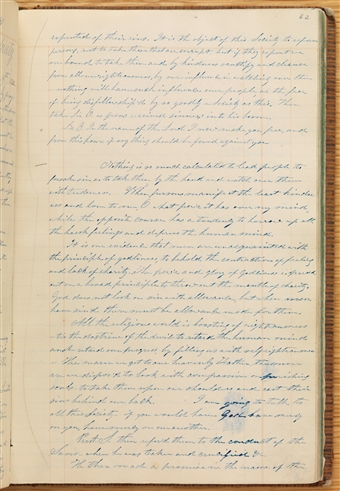 repented of their sins. It is the object of this Society to reform
persons, not to take those that are corrupt but if they repent we
are bound to take them and by kindness sanctify and cleanse
from all unrighteousness, by our influence in watching over them
nothing will have such influence over people, as the fear
of being disfellowshiped by so goodly a Society as this. Then
take Sr. O. as Jesus received sinners into his bosom
Sr. O. In the name of the Lord I now make you free, and
from this hour if any thing should be found against you
Nothing is so much calculated to lead people to
forsake sin as to take them by the hand and watch over them
with tenderness. When persons manifest the least kindness
and love to me, O what pow'r it has over my mind
while the opposite course has a tendency to harrow up all
the harsh feelings and depress the human mind.
It is one evidence that men are unacquainted with
the principle of godliness, to behold the contraction of feeling
and lack of charity. The pow'r and glory of Godliness is spread
out on a broad principle to throw out the mantle of charity.
God does not look on sin with allowance, but when men
have sin'd there must be allowance made for them.
All the religious world is boasting of righteousness
its the doctrine of the devil to retard the human mind
and retard our progress by filling us with self righteousness
The nearer we get to our heavenly Father the more
are we dispos'd to look with compassion on perishing
souls to take them upon our shoulders and cast their
sins behind our back. I am going to talk to
all this Society if you would have God have mercy
on you, have mercy on one another.
Prest. S. then refered them to the conduct of the
Savior when he was taken and crucified &c.
He then made a promise in the name of the